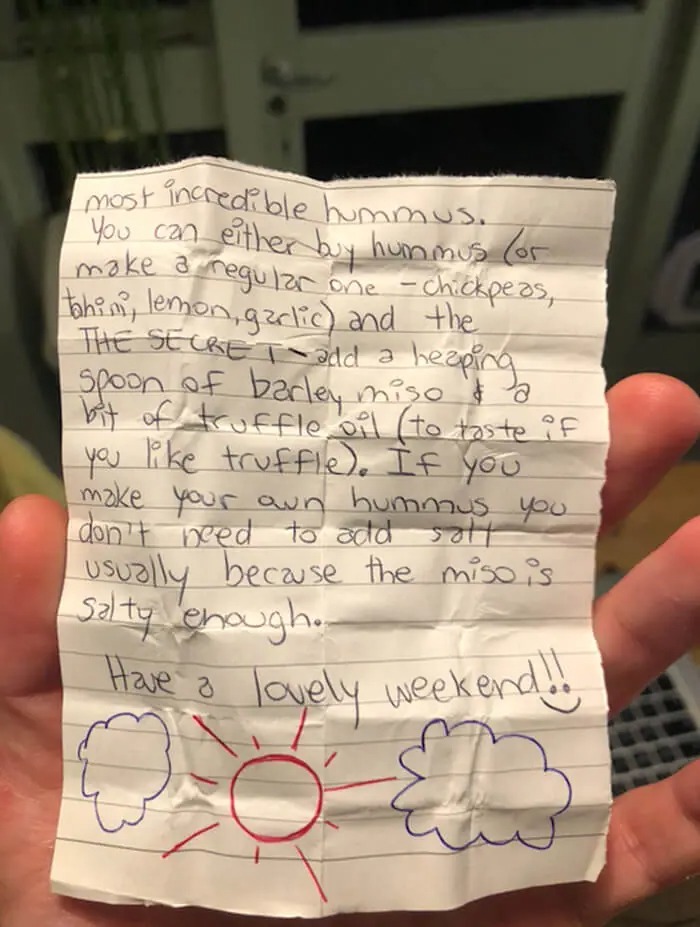 most incredible hummus.
You can either buy hummus (or
make a regular one - chickpeas,
tahini, lemon, garlic) and the
THE SECRET - add a heaping
spoon of barley miso & a
bit of truffle oil (to taste if
you like truffle). If you
make your own hummus you
don't need to add salt
usually because the miso is
salty enough.
Have a lovely weekend!!